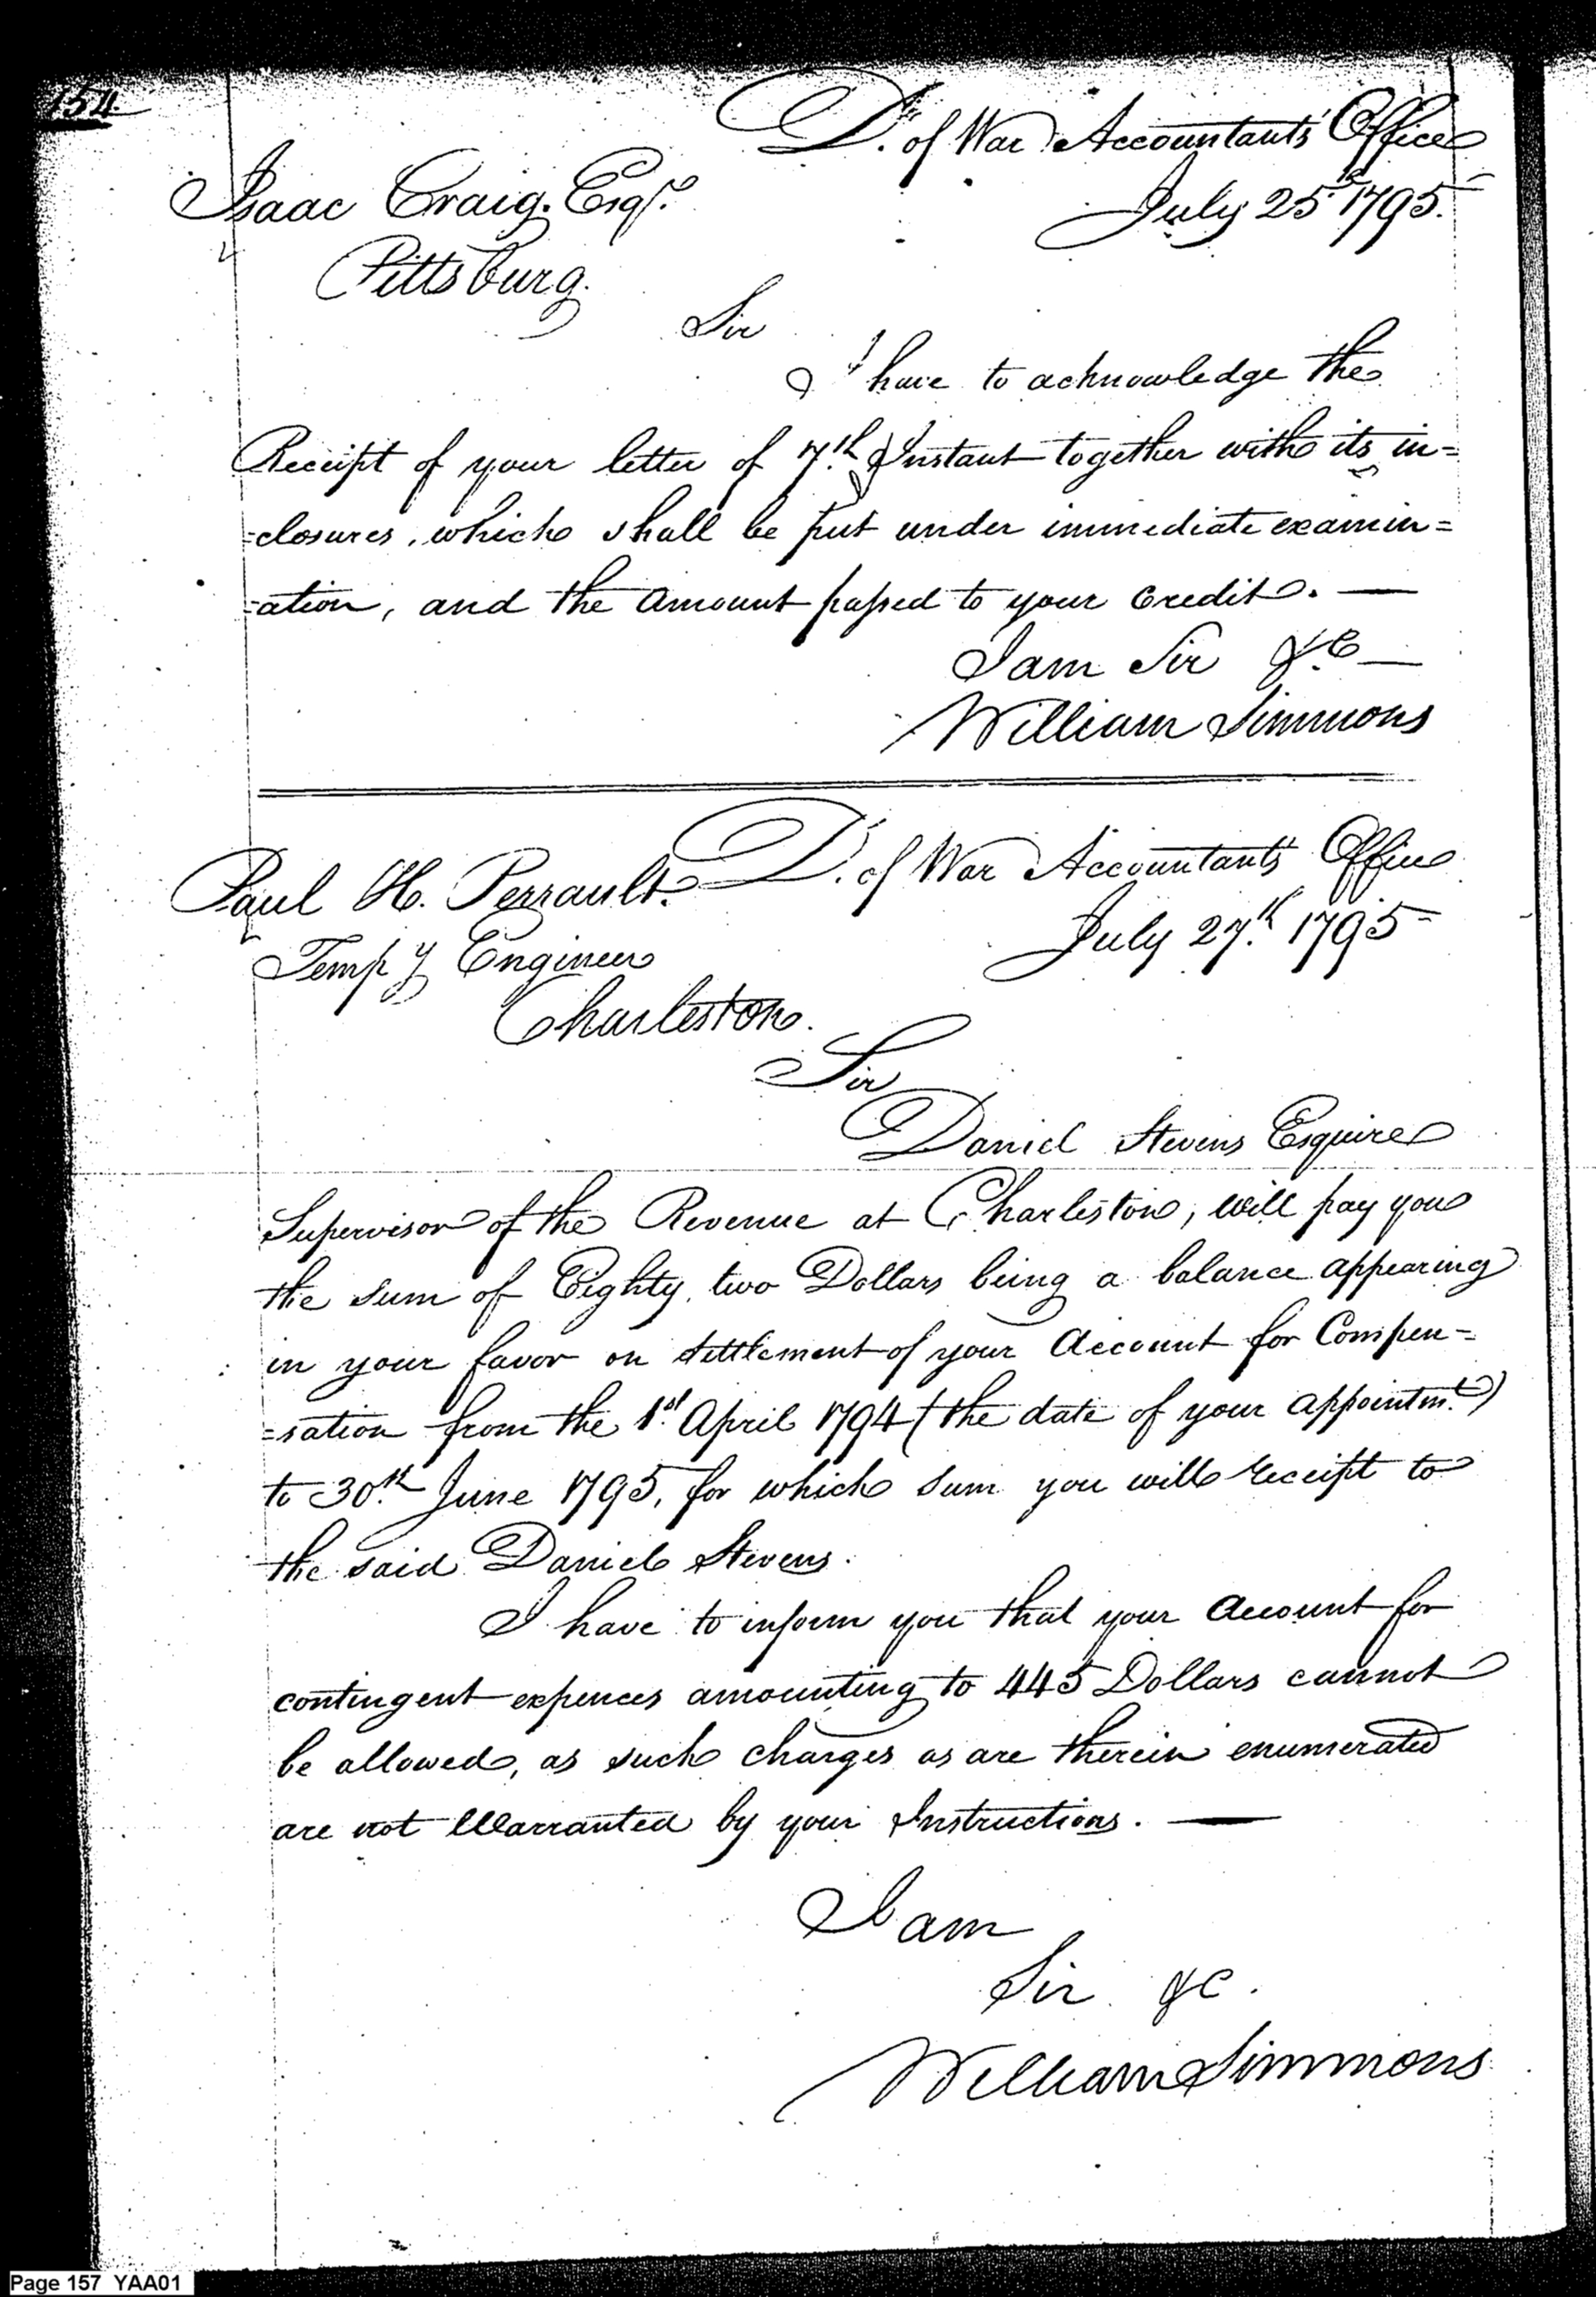 154
D. of War Accountants Office
Isaac Craig. Esqr.
July 25th 1795.
Pittsburg.
Sir
I have to acknowledge the
Receipt of your letter of 7th. Instant together with its in=
=closures, which shall be put under immediate examin=
=ation, and the amount passed to your credit. —
I am Sir &C —
William Simmons
D. of War Accountants Office
Paul H. Perrault.
July 27th. 1795
Tempy Engineer
Charleston.
Sir
Daniel Stevens Esquire
Supervisor of the Revenue at Charleston, will pay you
the sum of Eighty two Dollars being a balance appearing
in your favor on settlement of your Account for Compen=
=sation from the 1st. April 1794 (the date of your appointmt.)
to 30th. June 1795, for which sum you will receipt to
the said Daniel Stevens.
I have to inform you that your Account for
contingent expences amounting to 445 Dollars cannot
be allowed, as such charges as are therein enumerated
are not Warranted by your Instructions. —
I am
Sir &c.
William Simmons
Page 157 YAA01